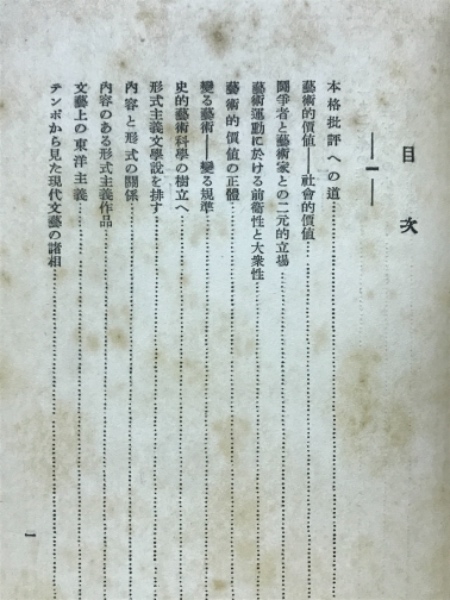 目次
―一―
本格批評への道
藝術的價値―社會的價値
鬪爭者と藝術家との二元的立場
藝術運動に於ける前衛性と大衆性
藝術的價値の正體
變る藝術――變る規準
史的藝術科學の樹立へ
形式主義文學說を排す
內容と形式の關係
內容のある形式主義作品
文藝上の東洋主義
テンポから見た現代文藝の諸相
一